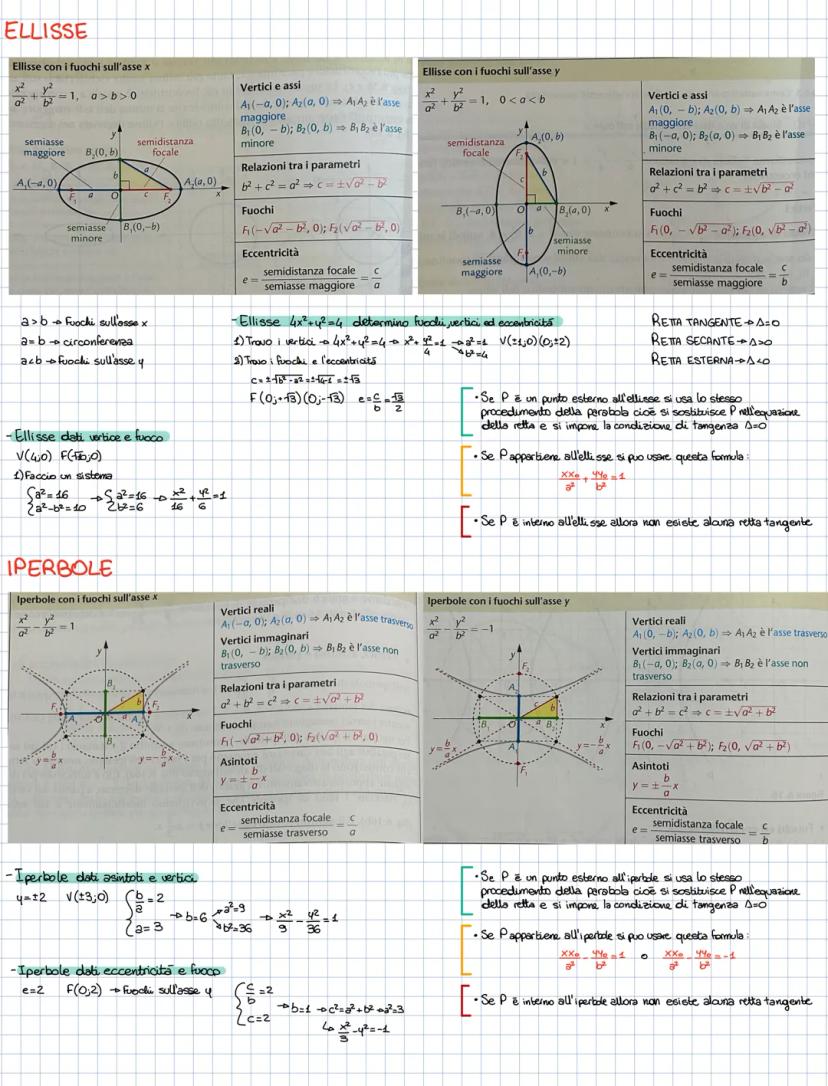 ELLISSE
Ellisse con i fuochi sull'asse x
x²/a² + y²/b² = 1, a > b > 0
semiasse maggiore
B₂(0, b)
semidistanza focale
A₁(−a, 0)
A₂(a, 0)
y
x
F₁
a
O
b
a
c
F₂
semiasse minore
B₁(0, −b)
Vertici e assi
A₁(−a, 0); A₂(a, 0) ⇒ A₁A₂ è l'asse
maggiore
B₁(0, − b); B₂(0, b) ⇒ B₁B₂ è l'asse
minore
Relazioni tra i parametri
b² + c² = a² ⇒ c = ±√a² − b²
Fuochi
F₁(−√a² − b², 0); F₂(√a² − b², 0)
Eccentricità
e = semidistanza focale / semiasse maggiore = c/a
Ellisse con i fuochi sull'asse y
x²/a² + y²/b² = 1, 0 < a < b
semidistanza focale
y
A₂(0, b)
F₂
c
b
B₁(−a, 0)
O
a
B₂(a, 0)
x
b
semiasse minore
F₁
semiasse maggiore
A₁(0, −b)
Vertici e assi
A₁(0, − b); A₂(0, b) ⇒ A₁A₂ è l'asse
maggiore
B₁(−a, 0); B₂(a, 0) ⇒ B₁B₂ è l'asse
minore
Relazioni tra i parametri
a² + c² = b² ⇒ c = ±√b² − a²
Fuochi
F₁(0, −√b² − a²); F₂(0, √b² − a²)
Eccentricità
e = semidistanza focale / semiasse maggiore = c/b
a>b → Fuochi sull'asse x
a=b → circonferenza
a<b → Fuochi sull'asse y
- Ellisse 4x²+y²=4 determino fuochi, vertici ed eccentricità
1) Trovo i vertici → 4x²+y²=4 → x²+y²/4=1 → a²=1 → b²=4 V(±1;0)(0;±2)
2) Trovo i fuochi e l'eccentricità
c=±√b²-a²=±√4-1=±√3
F(0;+√3)(0;-√3) e=c/b=√3/2
RETTA TANGENTE → Δ=0
RETTA SECANTE → Δ>0
RETTA ESTERNA → Δ<0
- Ellisse dati vertice e fuoco
V(4;0) F(√10;0)
1) Faccio un sistema
{a²=16 a²-b²=10 → {a²=16 b²=6 → x²/16+y²/6=1
• Se P è un punto esterno all'ellisse si usa lo stesso
procedimento della parabola cioè si sostituisce P nell'equazione
della retta e si impone la condizione di tangenza Δ=0
• Se P appartiene all'ellisse si può usare questa formula:
xx₀/a²+yy₀/b²=1
• Se P è interno all'ellisse allora non esiste alcuna retta tangente
IPERBOLE
Iperbole con i fuochi sull'asse x
x²/a² − y²/b² = 1
y
B₂
c
b
F₁
A₁
O
a
A₂
F₂
x
B₁
y=b/a x
y=−b/a x
Vertici reali
A₁(−a, 0); A₂(a, 0) ⇒ A₁A₂ è l'asse trasverso
Vertici immaginari
B₁(0, − b); B₂(0, b) ⇒ B₁B₂ è l'asse non
trasverso
Relazioni tra i parametri
a² + b² = c² ⇒ c = ±√a² + b²
Fuochi
F₁(−√a² + b², 0); F₂(√a² + b², 0)
Asintoti
y = ± b/a x
Eccentricità
e = semidistanza focale / semiasse trasverso = c/a
Iperbole con i fuochi sull'asse y
x²/a² − y²/b² = −1
y
F₂
A₂
c
b
B₁
O
a
B₂
x
A₁
y=b/a x
y=−b/a x
F₁
Vertici reali
A₁(0, −b); A₂(0, b) ⇒ A₁A₂ è l'asse trasverso
Vertici immaginari
B₁(−a, 0); B₂(a, 0) ⇒ B₁B₂ è l'asse non
trasverso
Relazioni tra i parametri
a² + b² = c² ⇒ c = ±√a² + b²
Fuochi
F₁(0, −√a² + b²); F₂(0, √a² + b²)
Asintoti
y = ± b/a x
Eccentricità
e = semidistanza focale / semiasse trasverso = c/b
- Iperbole dati asintoti e vertici
y=±2 V(±3;0) {b/a=2 a=3 → b=6 → a²=9 → b²=36 → x²/9-y²/36=1
- Iperbole dati eccentricità e fuoco
e=2 F(0;2) → Fuochi sull'asse y {c/b=2 c=2 → b=1 → c²=a²+b² → a²=3
↳ x²/3-y²=-1
• Se P è un punto esterno all'iperbole si usa lo stesso
procedimento della parabola cioè si sostituisce P nell'equazione
della retta e si impone la condizione di tangenza Δ=0
• Se P appartiene all'iperbole si può usare questa formula:
xx₀/a²-yy₀/b²=1 o xx₀/a²-yy₀/b²=-1
• Se P è interno all'iperbole allora non esiste alcuna retta tangente